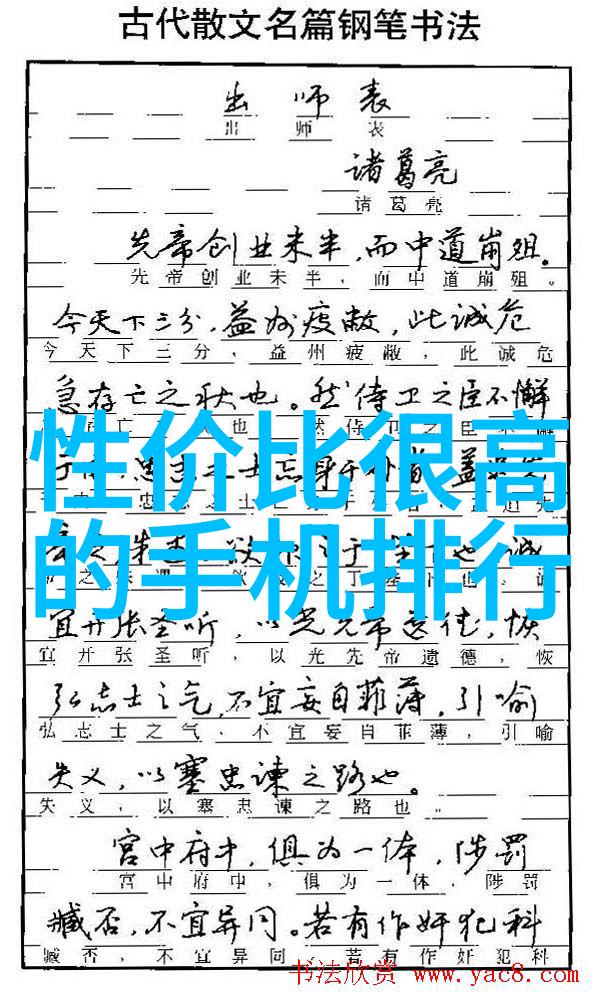 古代散文名篇钢笔书法
出师表
出师表
诸葛亮
诸葛亮
先帝创业未半，而中道崩殂。
先帝创业未半，而中道崩殂。
今天下三分，益州疲敝，此诚危
今天下三分，益州疲敝，此诚危
急存亡之秋也。然侍卫之臣不懈
性价比很高
忘身于外者
的手机排行
也，诚
宜开张圣听，以光先帝遗德，恢
宜开张圣听，以光先帝遗德，恢
弘志士之气，不宜妄自菲薄，引喻
弘志士之气，不宜妄自菲薄，引喻
失义，以塞忠谏之路也。
失义，以塞忠谏之路也。
宫中府中，俱为一体，陟罚
宫中府中，俱为一体，陟罚
臧否，不宜异同。若有作奸犯科
臧否，不宜异同。若有作奸犯科
书法欣赏 www.yac8.com